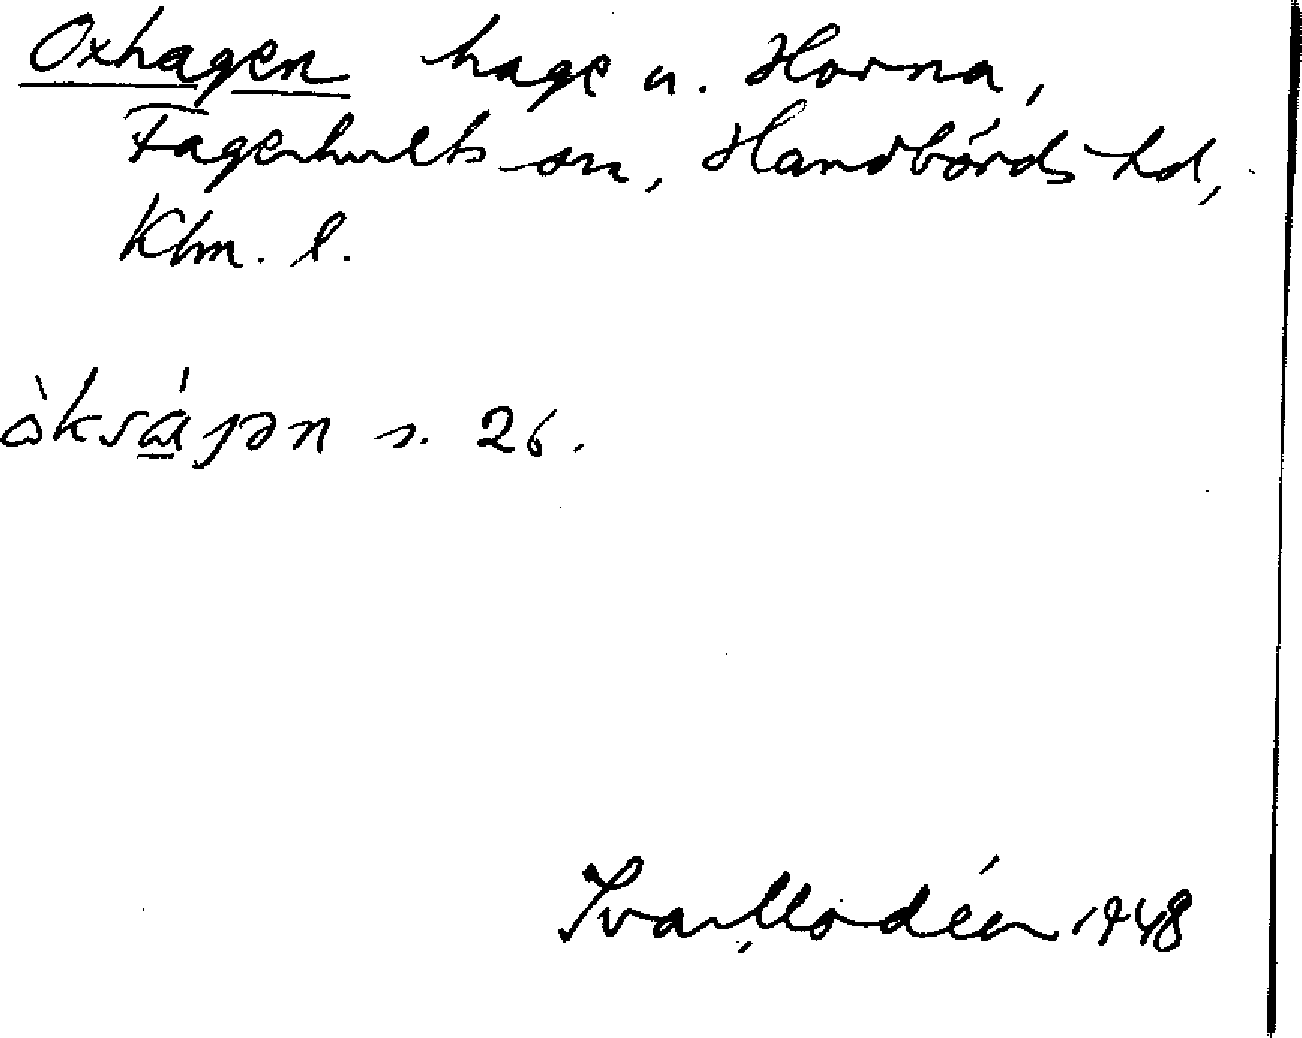 Oxhagen hage u. Horna,
Fagerhults sn, Handbörds hd,
Klm. l.
òksá̱ɡən s. 26.
Ivar Modéer 1948